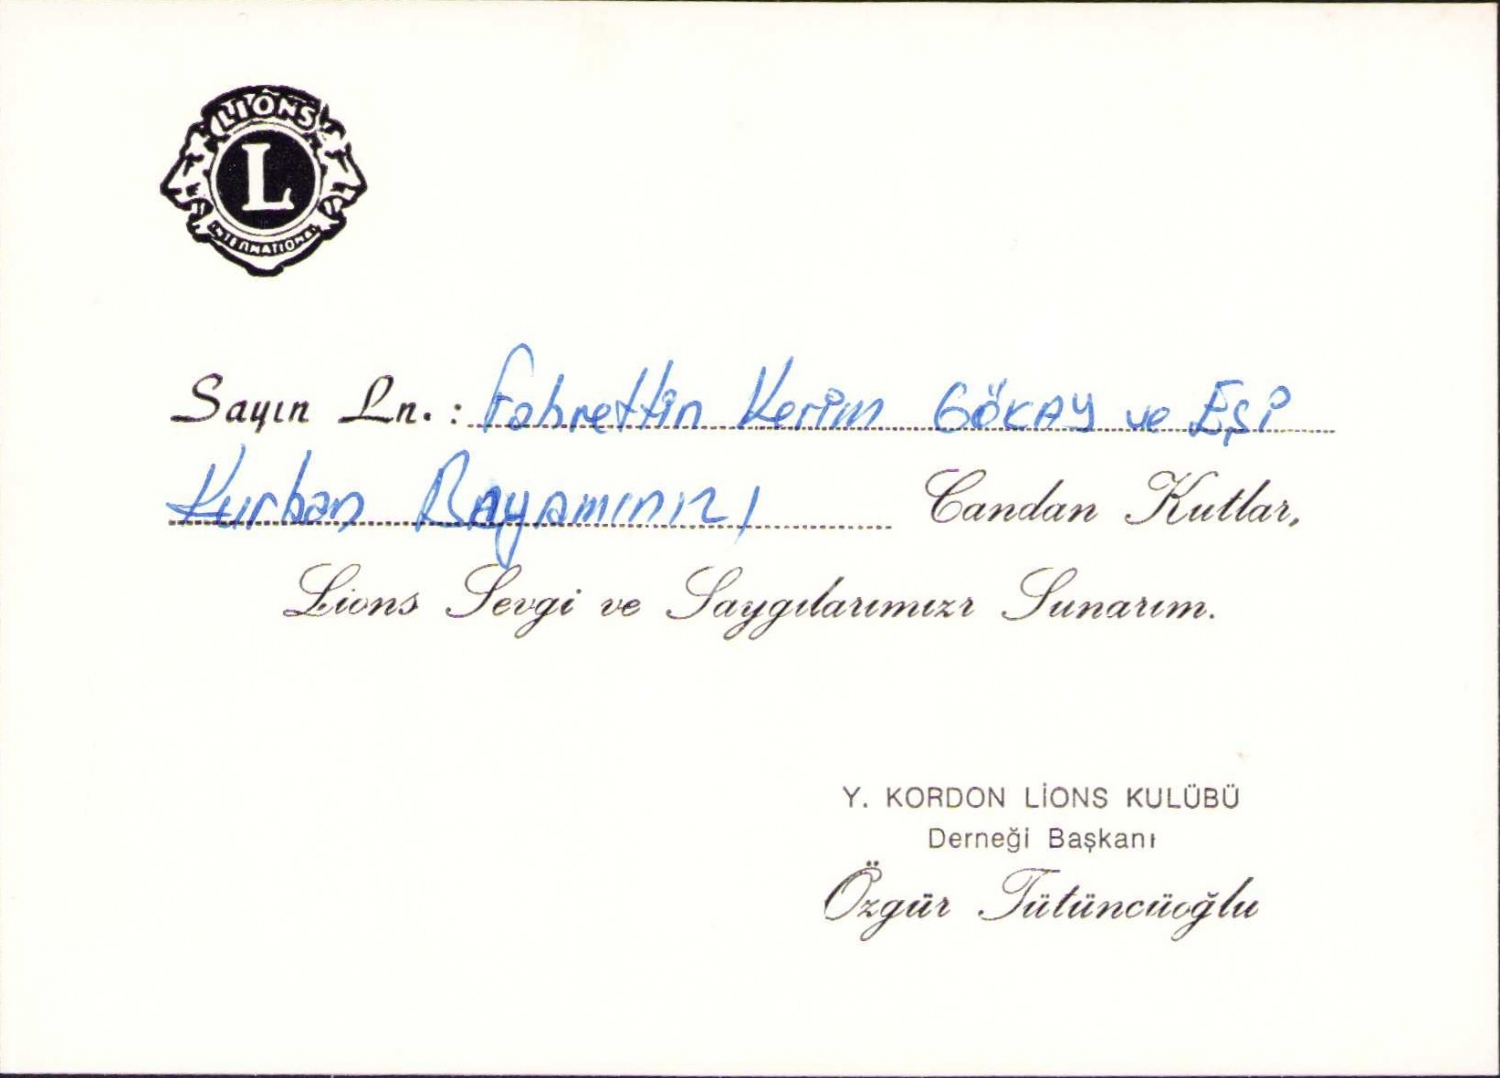 LIONS
L
INTERNATIONAL
Sayın Ln. : Fahrettin Kerim GÖKAY ve Eşi
Kurban Bayramınızı Candan Kutlar,
Lions Sevgi ve Saygılarımızı Sunarım.
Y. KORDON LİONS KULÜBÜ
Derneği Başkanı
Özgür Tütüncüoğlu